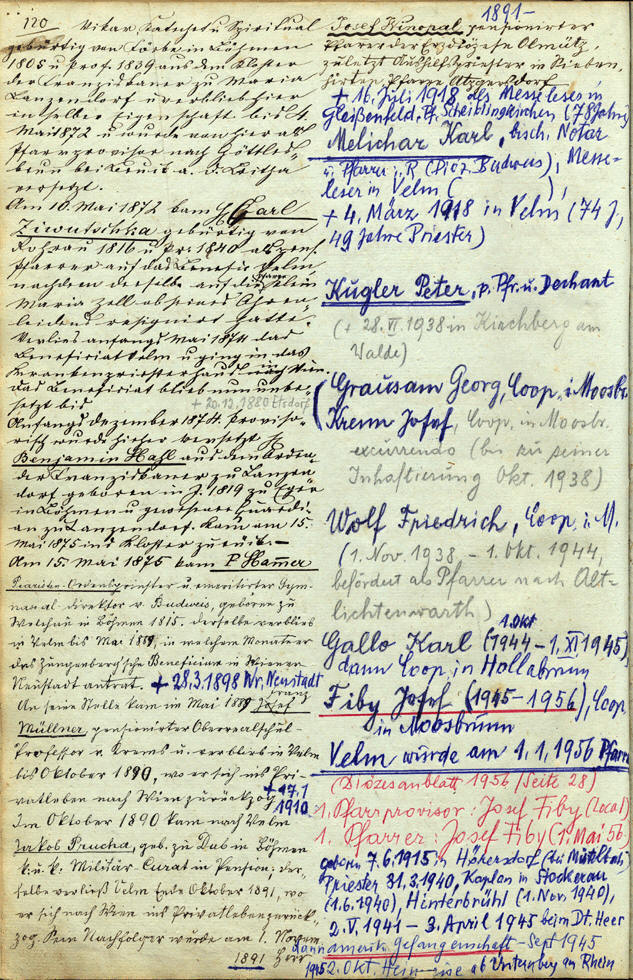 120
Vikar Katechet u Spiritual
gebürtig von in Böhmen
1805 u prof. 1839 aus dem Kloster
der Franziskaner zu Maria
Lanzendorf u verblieb hier
in selber Eigenschaft bis
Mai 1872 u wurde von hier als
Pfarrprovisor nach Göttles-
brun bei Bruck a. d. Leitha
versetzt.
Am 10. Mai 1872 kam H. Carl
Ziwutschka gebürtig von
Rohrau 1816 u 1840 als pens.
Pfarrer auf das Benefic. Velm,
nachdem derselbe auf die Pfarre Klein
Maria Zell ob seines Ohren-
leidens resignirt hatte.
Verließ anfangs Mai 1874 das
Benefiziat Velm u ging in das
Krankenpriesterhaus nach Wien.
Das Benefiziat blieb nun unbe-
setzt bis + 20.12.1880 Etsdorf
Anfangs Dezember 1874. Proviso-
risch wurde hieher versetzt P.
Benjamin Hahl aus dem Orden
der Franziskaner zu Lanzen-
dorf geboren im J. 1819 zu Eger
in Böhmen u gewesener Guardi-
an zu Lanzendorf. Kam am 15.
Mai 1875 ins Kloster zurück.
Am 15. Mai 1875 kam P Hammer
Piaristen-Ordenspriester u. emeritirter Gym-
nasial direktor v. Budweis, geboren zu
in Böhmen 1815. derselbe verblieb
in Velm bis Mai 1889, in welchem Monate er
das Beneficium in Wiener
Neustadt antrat. + 28.3.1898 Wr. Neustadt
An seine Stelle kam im Mai 1889 Franz Josef
Müllner, pensionirter Oberrealschul-
Professor v. Krems u. verblieb in Velm
bis Oktober 1890, wo er sich ins Pri-
vatleben nach Wien zurückzog. + 17.1
1910
Im Oktober 1890 kam nach Velm
Jakob Prucha, geb. zu Dub in Böhmen
k. u. k. Militär-Curat in Pension; der-
selbe verließ Velm Ende Oktober 1891, wo
er sich nach Wien ins Privatleben zurück-
zog. Sein Nachfolger wurde am 1. Novem.
1891 Herr
1891-
Josef Winopal, pensionirter
Pfarrer der Erzdiözese Olmütz,
zuletzt Aushilfspriester in Sieben-
hirten, Pfarre Atzgersdorf
+ 16. Juli 1918 als Messeleser in
Gleißenfeld, Pf. Scheiblingkirchen (78 Jahre)
Melichar Karl, bisch. Notar
u. Pfarrer i. R (Diöz. Budweis), Messe-
leser in Velm ( ),
+ 4. März 1918 in Velm (74 J,
49 Jahre Priester)
Kugler Peter, p. Pfr. u. Dechant
(+ 28. VI. 1938 in Kirchberg am
Walde)
(Grausam Georg, Coop. i. Moosbr.
Krenn Josef, Coop. in Moosbr.
excurrendo (bis zu seiner
Inhaftierung Okt. 1938)
Wolf Friedrich, Coop. i. M.
(1. Nov. 1938 - 1. Okt. 1944,
befördert als Pfarrer nach Alt-
lichtenwarth)
Gallo Karl (1. Okt 1944 - 1. XI 1945)
dann Coop. in Hollabrunn
Fiby Josef (1945 - 1956), Coop.
in Moosbrunn
Velm wurde am 1.1.1956 Pfarre
(Diözesanblatt 1956 / Seite 28)
1. Pfarrprovisor: Josef Fiby (Local)
1. Pfarrer: Josef Fiby (1. Mai 56)
geboren 7.6.1915 in Höbersdorf (bei Mistelbach)
Priester 31.3.1940, Kaplan in Stockerau
(1.6.1940), Hinterbrühl (1. Nov. 1940),
2. V. 1941 - 3. April 1945 beim Dt. Heer
dann amerik. Gefangenschaft - Sept 1945
1945 2. Okt. Heimreise ab Unternberg am Rhein